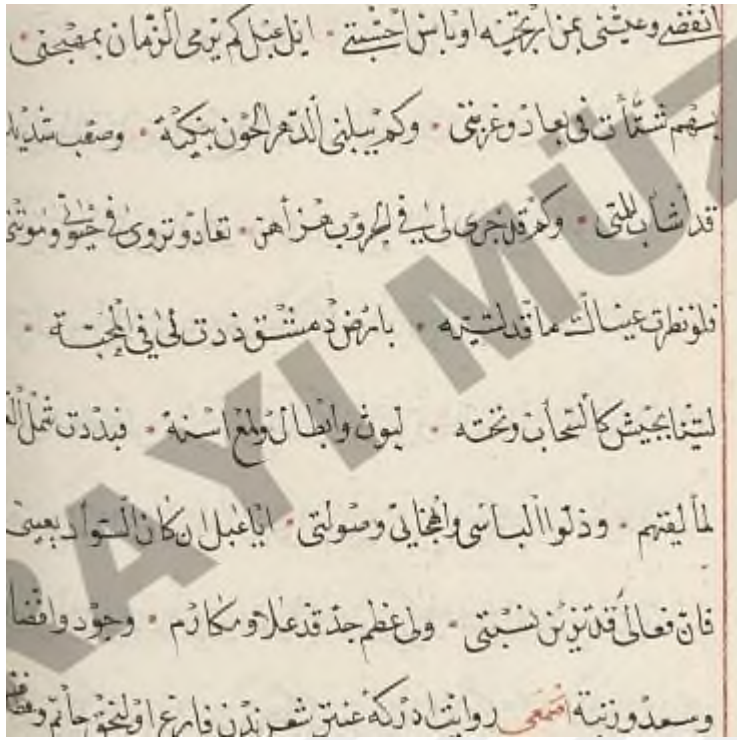 انقضى وعيشى بمن ارتجيه اوباس احبتي • ايا عبل كم يرمى الزمان بمهجتى •
بسهم شتات فى بعاد وغربتى • وكم يبلنى الدهر الخون بنكبة • وصعب شديد
قد شاب للمتى • وكم قد جرى لى فى الحروب هزاهز • تعاد وتروى فى حيوتى وموتتى
فلو نظرت عيناك ما قد لقيته • بارض دمشق زدت لى فى المحبة •
لقينا بجيش كالسحاب وتحته • ليوث وابطال ولمع اسنة • فبددت شمل
لما لقيتهم • وذلوا الباسى والهجاى وصولتى • ايا عبل ان كان السواد بعيبى
فان فعالى قد تزين نسبتى • ولى عظم جد قد علا ومكارم • وجود وافضا
وسعد ورتبة اصمعى روايت ادركه عنتر شعرندن فارغ اولنجق حاتم
RAYI MÜZ